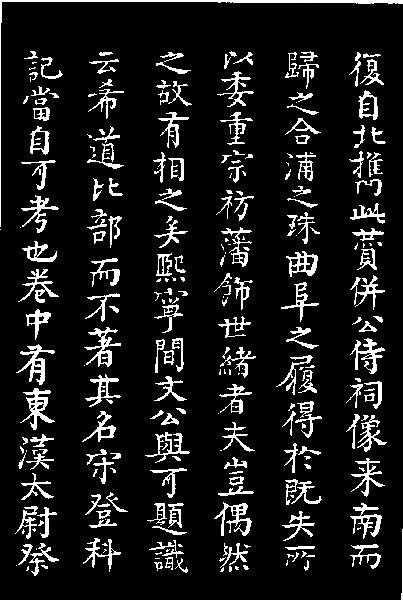 復自北擕此賛併公侍祠像来南而
歸之合浦之珠曲阜之履得於既失所
以委重宗祊藩飾世緒者夫豈偶然
之故有相之矣熙寧間文公與可題識
云希道比部而不著其名宋登科
記當自可考也卷中有東漢太尉祭